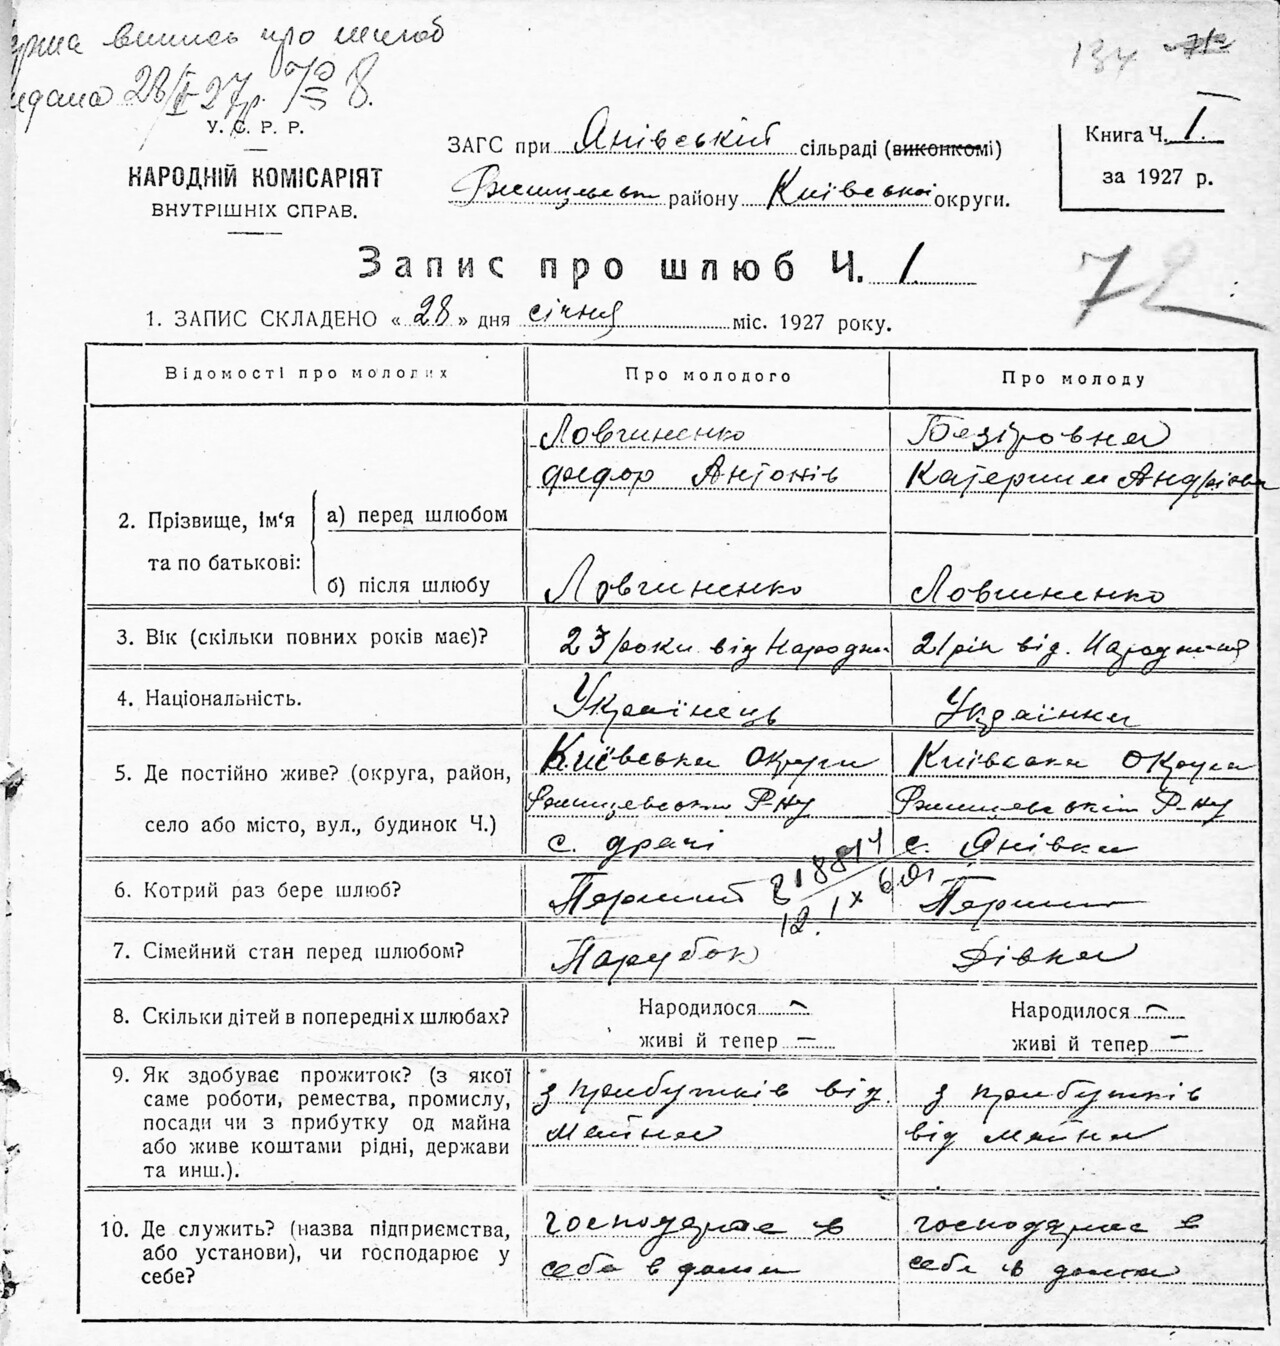 випись про шлюб
28/I 27р. № 8.
134
У. С. Р. Р.
НАРОДНІЙ КОМІСАРІЯТ
ВНУТРІШНІХ СПРАВ.
ЗАГС при Янівській сільраді (виконкомі)
району Київської округи.
Книга Ч. I.
за 1927 р.
Запис про шлюб Ч. 1
72
1. ЗАПИС СКЛАДЕНО « 28 » дня січня міс. 1927 року.
Відомості про молодих Про молодого Про молоду
Ловчиненко
Федор Антонів Катерина Андріївна
2. Прізвище, ім'я та по батькові: а) перед шлюбом
б) після шлюбу Ловчиненко Ловчиненко
3. Вік (скільки повних років має)? 23 роки від 21 рік від.
4. Національність. Українець Українка
5. Де постійно живе? (округа, район, Київська округи Київська округа
село або місто, вул., будинок Ч.) Р-ну Р-ну
с. драчі с. Янівка
6. Котрий раз бере шлюб? Перший Перший
7. Сімейний стан перед шлюбом? Парубок Дівка
8. Скільки дітей в попередніх шлюбах? Народилося — Народилося —
живі й тепер — живі й тепер —
9. Як здобуває прожиток? (з якої
саме роботи, ремества, промислу, з прибутків від з прибутків
посади чи з прибутку од майна майна від майна
або живе коштами рідні, держави
та инш.).
10. Де служить? (назва підприємства, господарює в господарює в
або установи), чи господарює у себе в дома себе в дома
себе?